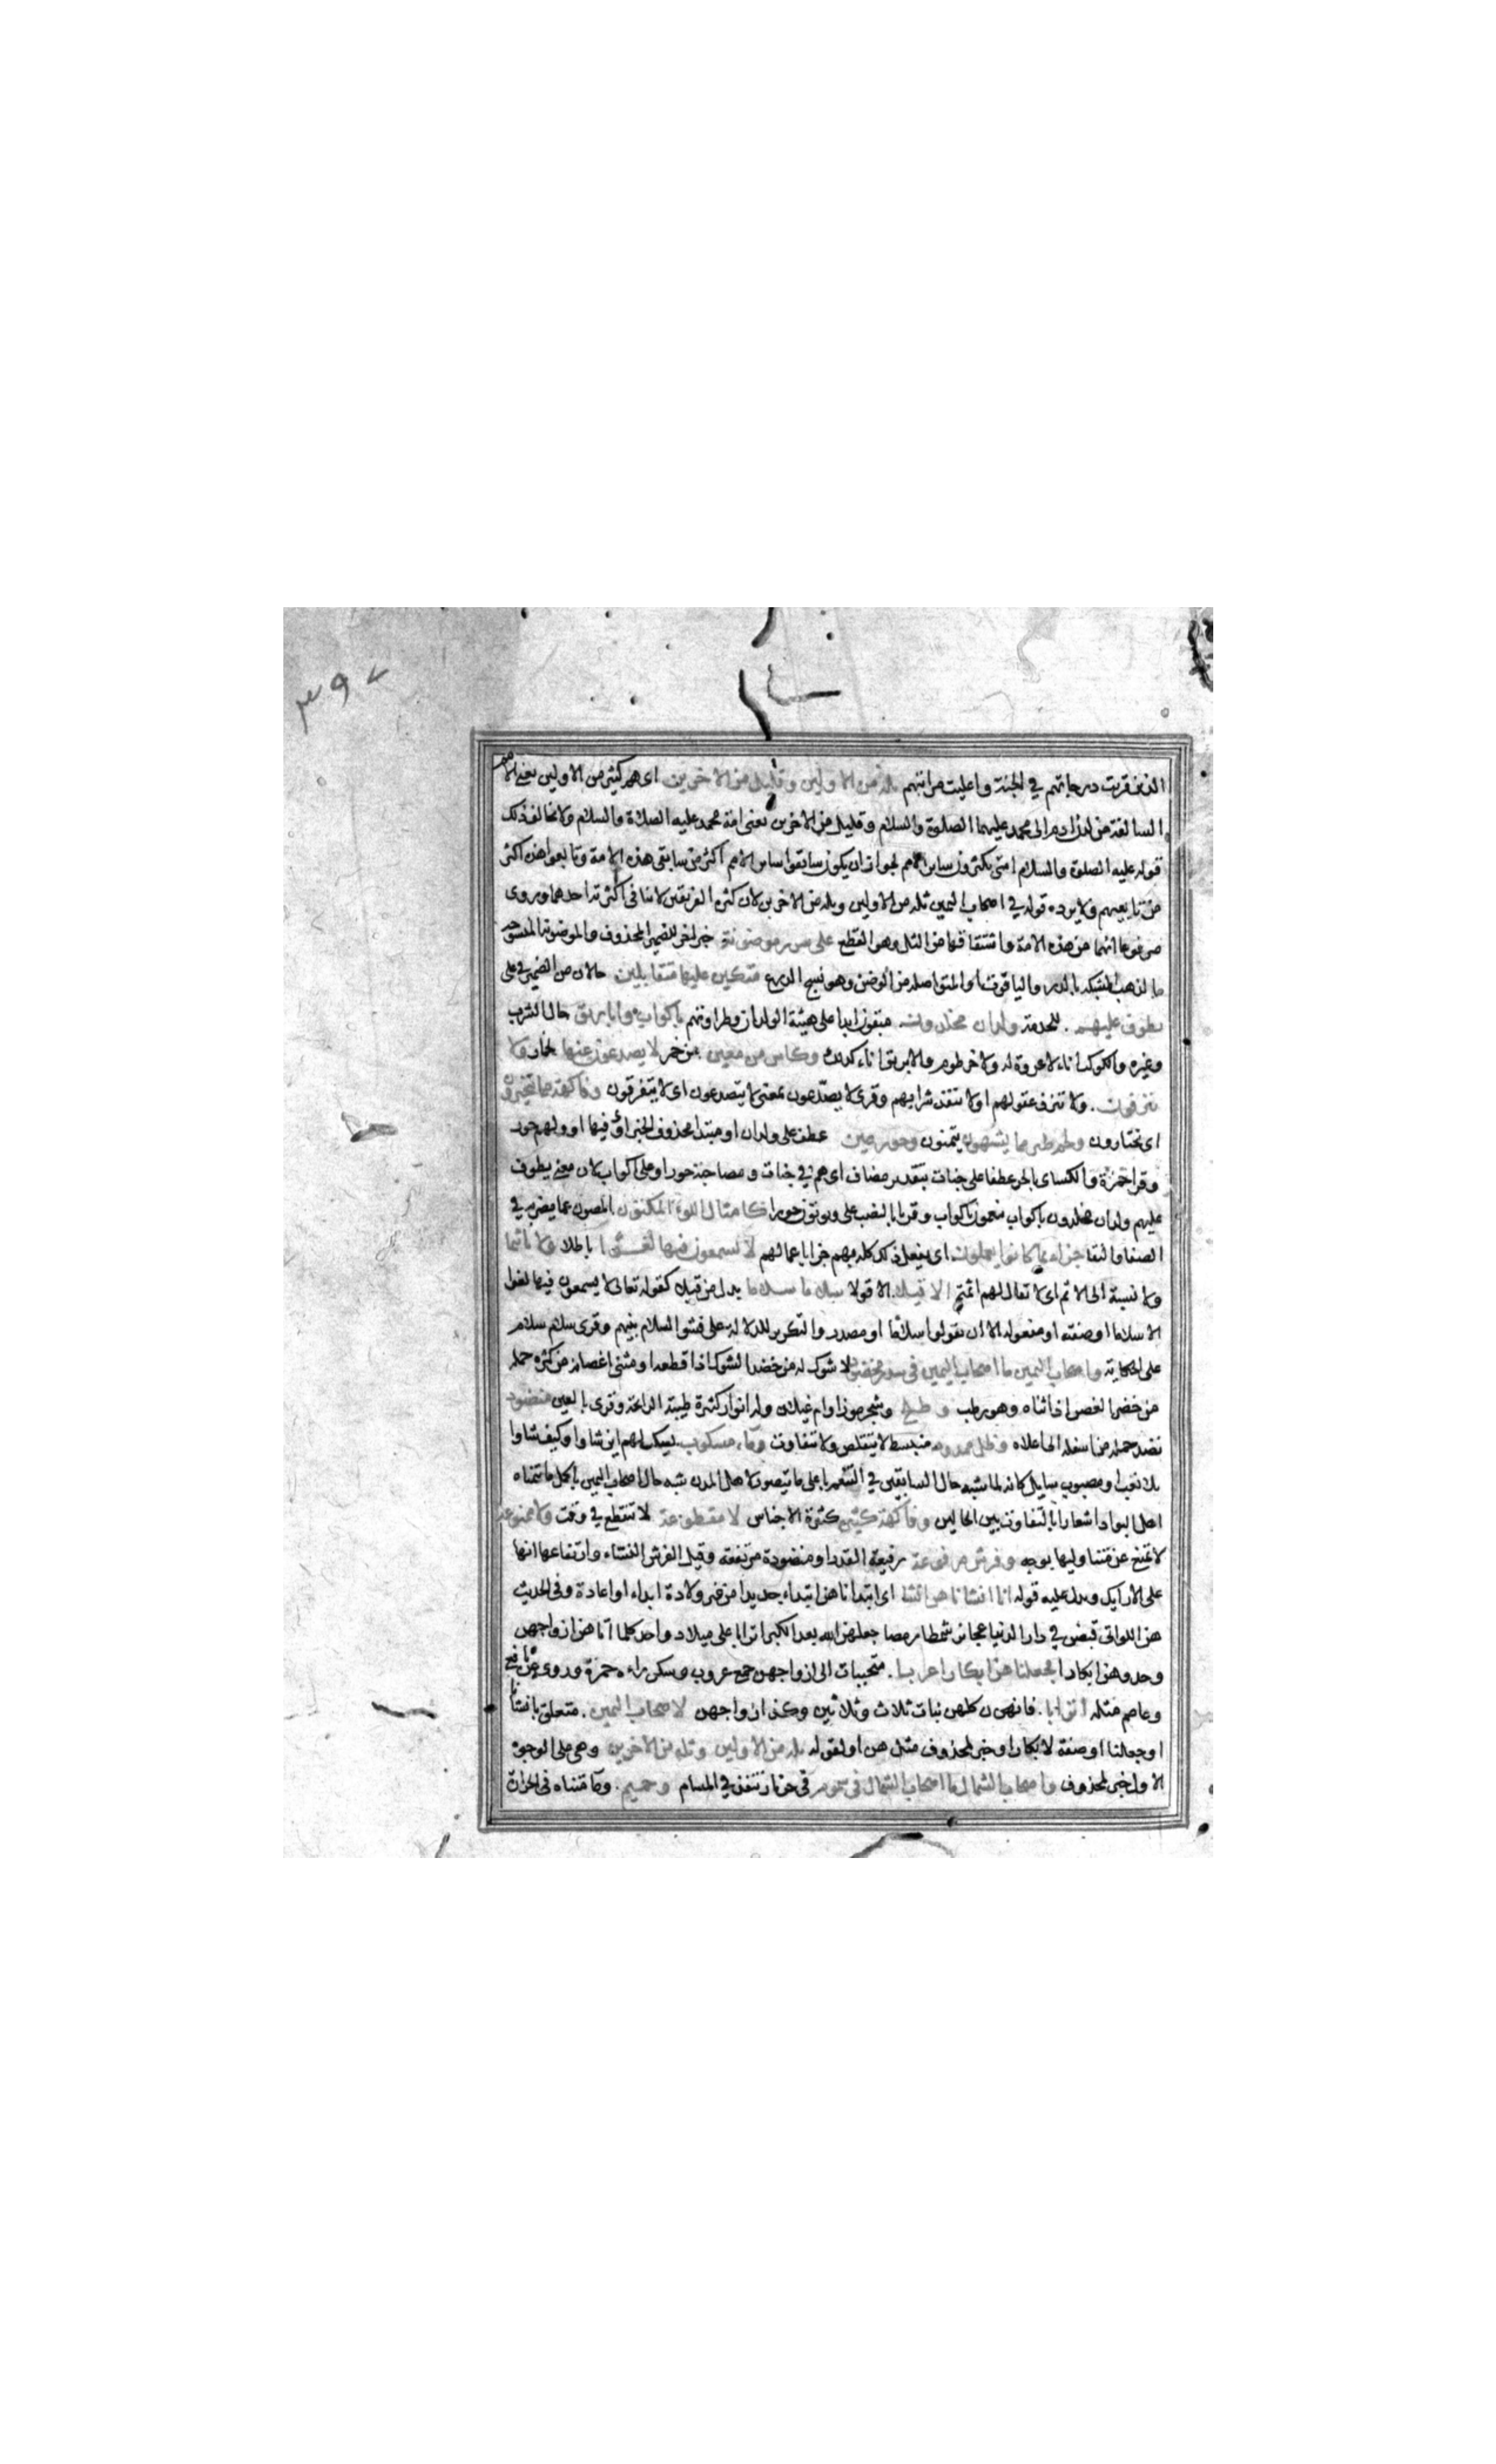 ٣٩٧
الذين قربت درجاتهم في الجنة واعليت مراتبهم ثلة من الاولين وقليل من الاخرين اى هم كثير من الاولين يعني الامم
السالفة من لدن ادم الى محمد عليهما الصلوة والسلام وقليل من الاخرين يعنى امة محمد عليه الصلاة والسلام ولا يخالف ذلك
قوله عليه الصلوة والسلام امتى يكثرون ساير الامم لجواز ان يكون سابقوا ساير الامم اكثر من سابقى هذه الامة وتابعوا هذه اكثر
من تابعيهم ولا يرده قوله في اصحاب اليمين ثلة من الاولين وثلة من الاخرين لان كثرة الفريقين لا ينافى اكثرية احدهما وروى
مرفوعا انهما من هذه الامة واشتقاقها من الثل وهو القطع على سرر موضونة خبر اخر للضمير المحذوف والموضونة المنسوجة
بالذهب المشبكة بالدر والياقوت او المتواصلة من الوضن وهو نسج الدرع متكين عليها متقابلين حالان من الضمير في على
يطوف عليهم للخدمة ولدان مخلدون مبقون ابدا على هيئة الولدان وطراوتهم باكواب واباريق حال الشرب
وغيره والكوب اناء لا عروة له ولا خرطوم والابريق اناء له ذلك وكاس من معين من خمر لا يصدعون عنها بخمار ولا
ينزفون ولا تنزف عقولهم او لا ينفذ شرابهم وقرئ لا يصدعون بمعنى لا يتصدعون اى لا يتفرقون وفاكهة مما يتخيرون
اى يختارون ولحم طير مما يشتهون يتمنون وحور عين عطف على ولدان او مبتدا محذوف الخبر اى وفيها او ولهم حور
وقرا حمزة والكسائ بالجر عطفا على جنات بتقدير مضاف اى هم في جنات ومصاحبة حور او على اكواب لان معنى يطوف
عليهم ولدان مخلدون باكواب ينعمون باكواب وقريا بالنصب على ويوتون حورا كامثال اللوء لوء المكنون المصون عما يضر به في
الصفا والنقا جزاء بما كانوا يعملون اى يفعل ذلك كله بهم جزا باعمالهم لا يسمعون فيها لغوا باطلا ولا تاثيما
ولا نسبة الى الاثم اى لا يقال لهم اثمتم الا قيلا الا قولا سلاما سلاما بدل من قيلا كقوله تعالى لا يسمعون فيها لغوا
الا سلاما او صفته او مفعوله الا ان يقولوا سلاما او مصدر والتكرير للدلالة على فشو السلام بينهم وقرئ سلام سلام
على الحكاية واصحاب اليمين ما اصحاب اليمين في سدر مخضود لا شوك له من خضد الشوك اذا قطعه او مثنى اغصانه من كثرة حمله
من خضد الغصن اذا ثناه وهو رطب وطلح وشجر موز او ام غيلان وله انوار كثيرة طيبة الرائحة وقرى بالعين منضود
نضد حمله من اسفله الى اعلاه وظل ممدود منبسط لا يتقلص ولا يتفاوت وماء مسكوب يسكب لهم اين شاوا وكيف شاوا
بلا تعب او مصبوب سايل كانه لما شبه حال السابقين في التنعم باعلى ما يتصور لاهل المدن شبه حال اصحاب اليمين باكمل ما يتمناه
اهل البوادى اشعارا بالتفاوت بين الحالين وفاكهة كثيرة كثيرة الاجناس لا مقطوعة لا تنقطع في وقت ولا ممنوعة
لا تمنع عن متناوليها بوجه وفرش مرفوعة رفيعة القدر او منضودة مرتفعة وقيل الفرش النساء وارتفاعها انها
على الارايك ويدل عليه قوله انا انشاناهن انشا اى ابتداناهن ابتداء جديدا من غير ولادة ابداء او اعادة وفي الحديث
هن اللواتى قبضن في دار الدنيا عجائز شمطا رمصا جعلهن الله بعد الكبر اترابا على ميلاد واحد كلما اتاهن ازواجهن
وجدوهن ابكارا فجعلناهن ابكارا عربا متحببات الى ازواجهن جمع عروب وسكن راءه حمزة وروى عن نافع
وعاصم مثله اترابا فان هن كلهن بنات ثلاث وثلاثين وكذا ازواجهن لاصحاب اليمين متعلق بانشانا
او جعلنا او صفة لابكارا او خبر لمحذوف مثل هن او لقوله ثلة من الاولين وثلة من الاخرين وهى على الوجوه
الاول خبر لمحذوف واصحاب الشمال ما اصحاب الشمال في سموم في حر نار ينفذ في المسام وحميم وماء متناه في الحرارة